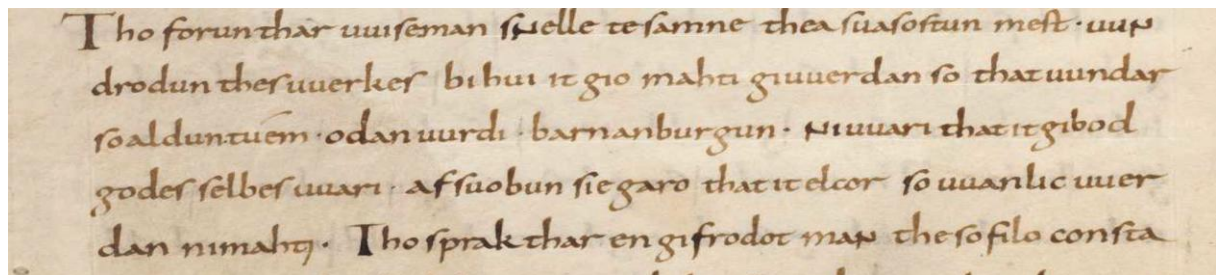 Tho forun thar uuiseman snelle te samne thea suasostun mest · uun
drodun thes uuerkes bi hui it gio mahti giuuerdan so that uundar
so aldun tuem · odan uurdi · barn an burgun · ni uuari that it gibod
godes selbes uuari · afsuobun sie garo that it elcor so uuanlic uuer
dan ni mahti · Tho sprak thar en gifrodot man the so filo consta